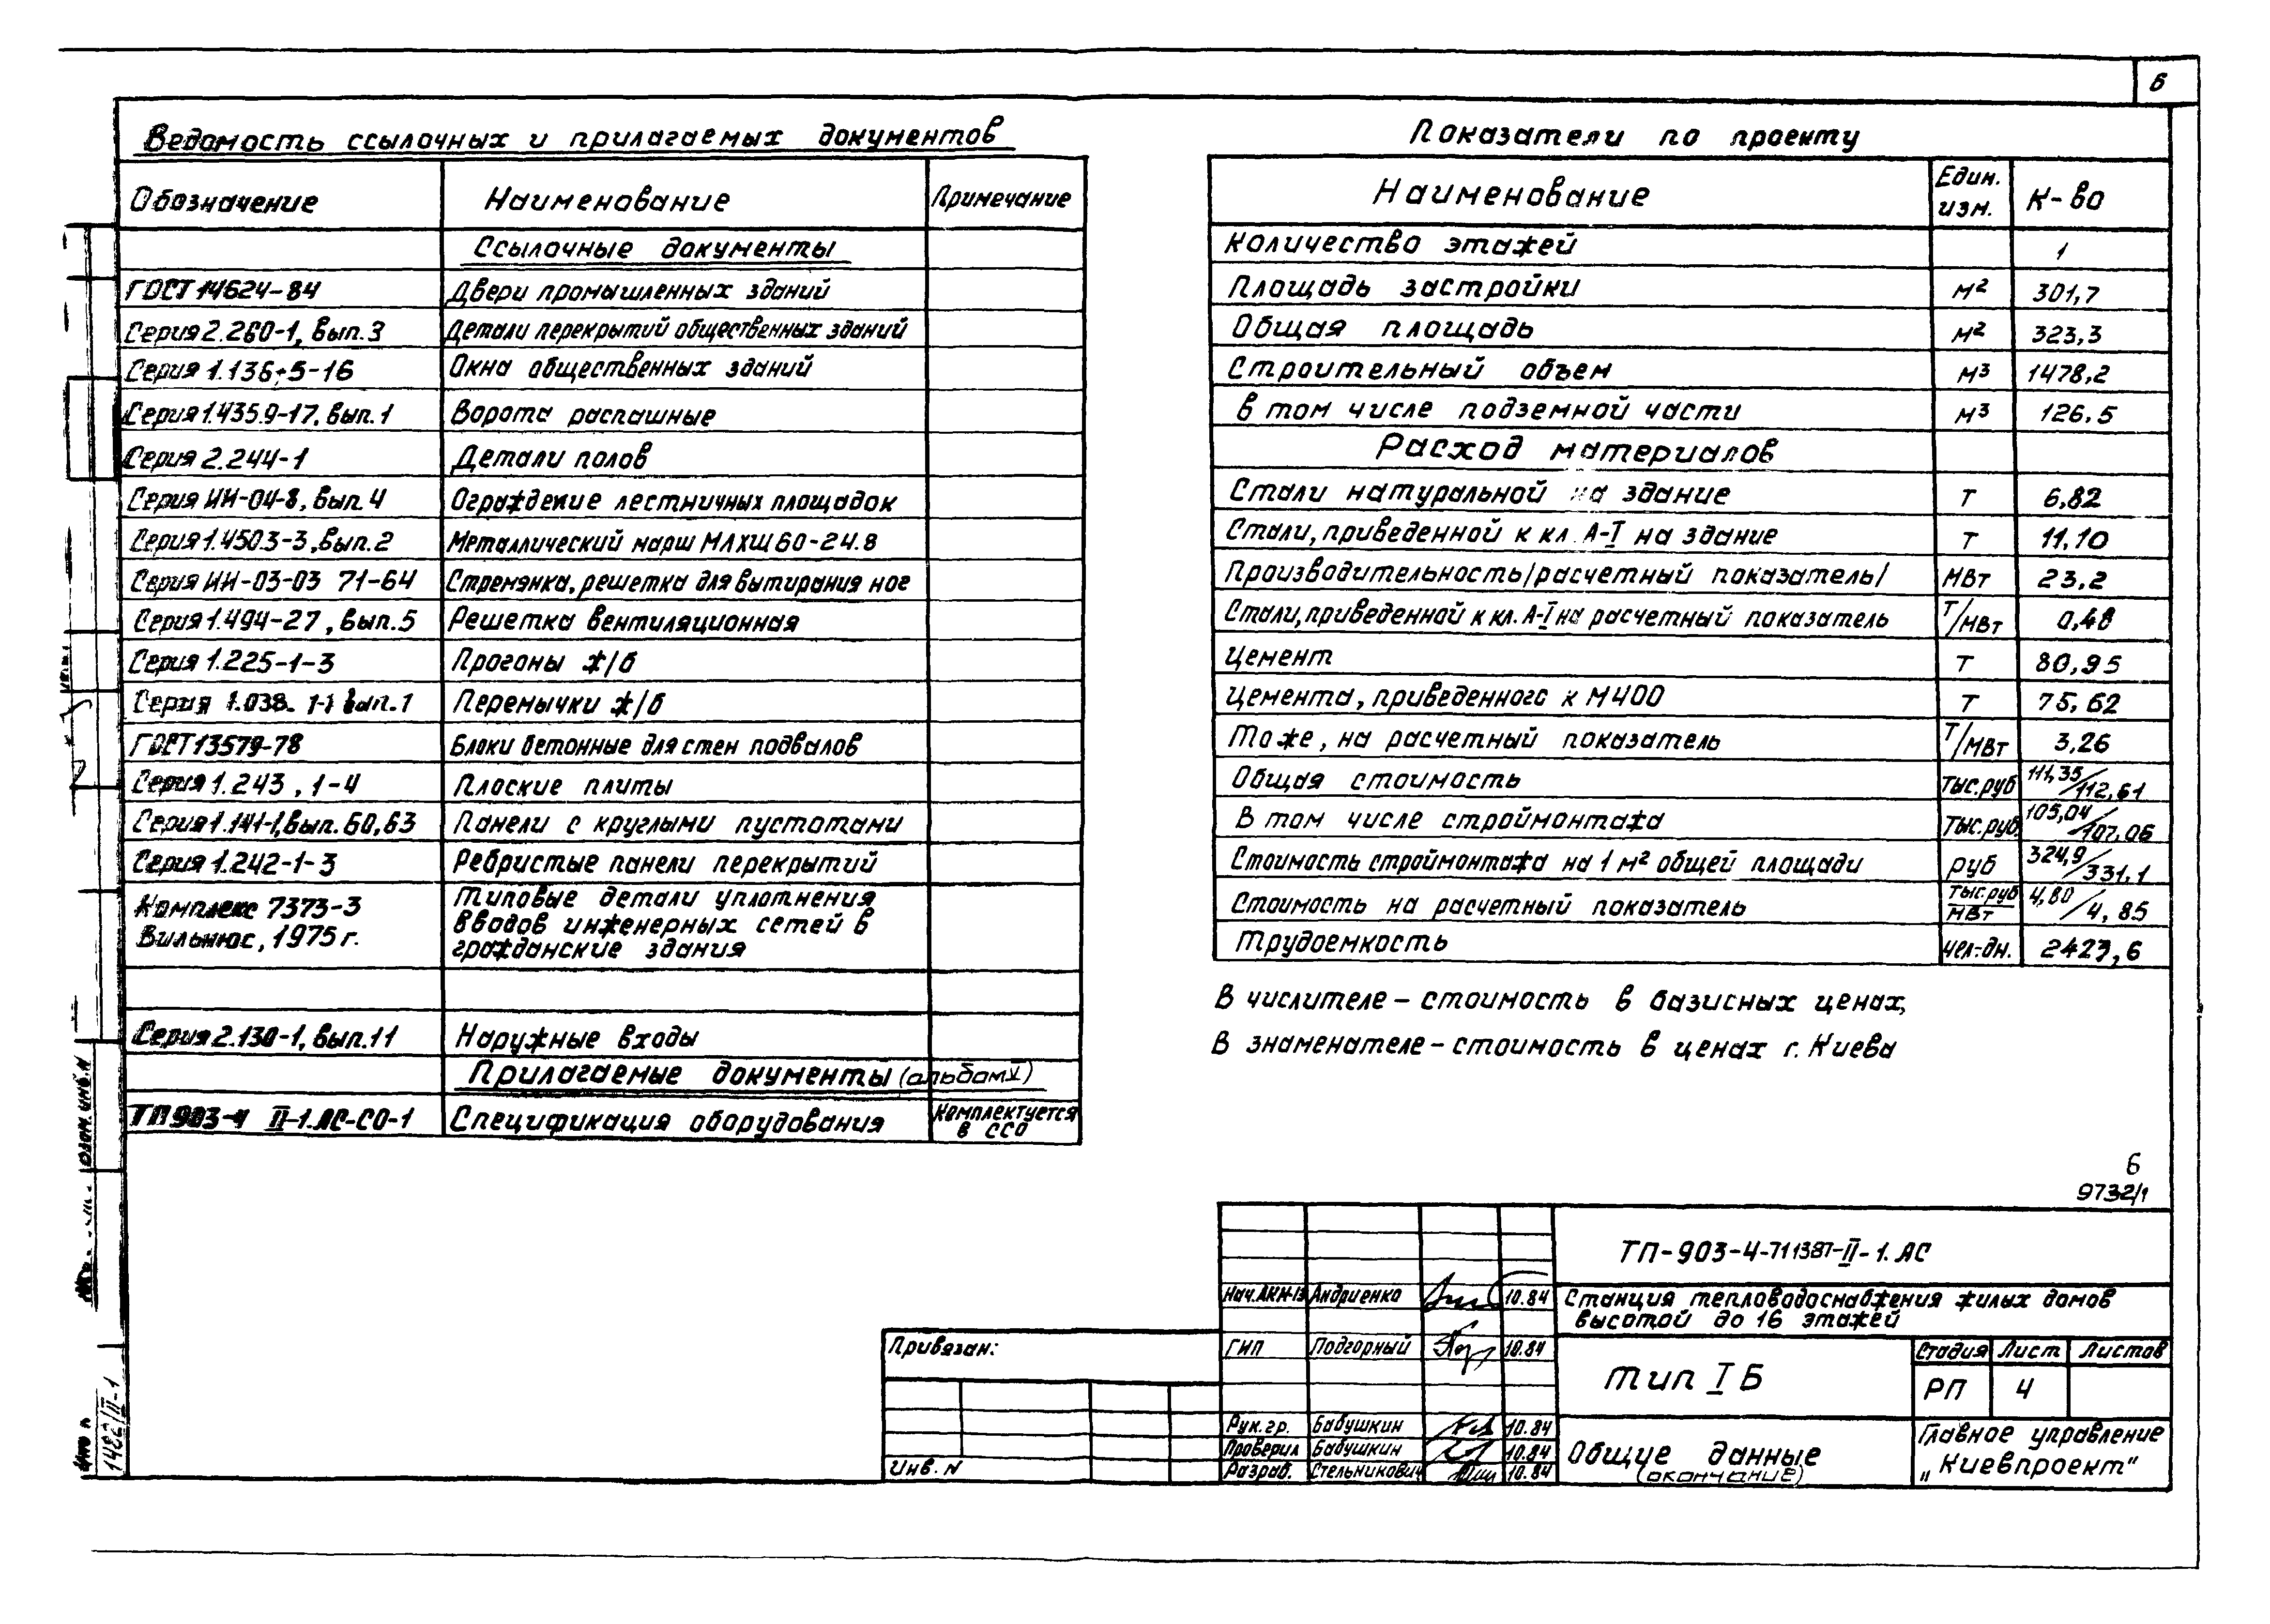 6
Ведомость ссылочных и прилагаемых документов
Обозначение Наименование Примечание
Ссылочные документы
ГОСТ 14624-84 Двери промышленных зданий
Серия 2.260-1, вып.3 Детали перекрытий общественных зданий
Серия 1.136.5-16 Окна общественных зданий
Серия 1.435.9-17, вып.1 Ворота распашные
Серия 2.244-1 Детали полов
Серия ИИ-04-8, вып.4 Ограждение лестничных площадок
Серия 1.450.3-3, вып.2 Металлический марш МЛХШ 60-24.8
Серия ИИ-03-03 71-64 Стремянка, решетка для вытирания ног
Серия 1.494-27, вып.5 Решетка вентиляционная
Серия 1.225-1-3 Прогоны ж/б
Серия 1.038. 1-1 вып.1 Перемычки ж/б
ГОСТ 13579-78 Блоки бетонные для стен подвалов
Серия 1.243, 1-4 Плоские плиты
Серия 1.141-1, вып. 60,63 Панели с круглыми пустотами
Серия 1.242-1-3 Ребристые панели перекрытий
Комплекс 7373-3 Типовые детали уплотнения
Вильнюс, 1975г. вводов инженерных сетей в
гражданские здания
Серия 2.130-1, вып.11 Наружные входы
Прилагаемые документы (альбом V)
ТП 903-4 II-1.АС-СО-1 Спецификация оборудования Комплектуется
в ССО
Показатели по проекту
Наименование Един. изм. К-во
Количество этажей 1
Площадь застройки м² 301,7
Общая площадь м² 323,3
Строительный объем м³ 1478,2
в том числе подземной части м³ 126,5
Расход материалов
Стали натуральной на здание т 6,82
Стали, приведенной к кл. А-I на здание т 11,10
Производительность/расчетный показатель/ МВт 23,2
Стали, приведенной к кл. А-I на расчетный показатель т/МВт 0,48
Цемент т 80,95
Цемента, приведенного к М400 т 75,62
То же, на расчетный показатель т/МВт 3,26
Общая стоимость тыс.руб 111,35/112,61
В том числе строймонтажа тыс.руб. 105,04/107,06
Стоимость строймонтажа на 1 м² общей площади руб 324,9/331,1
Стоимость на расчетный показатель тыс.руб/МВт 4,80/4,85
Трудоемкость чел-дн. 2423,6
В числителе - стоимость в базисных ценах,
В знаменателе - стоимость в ценах г. Киева
6
9732/1
ТП-903-4-71 1387-II-1.АС
Нач.АКМ-13 Андриенко 10.84
Станция тепловодоснабжения жилых домов
высотой до 16 этажей
ГИП Подгорный 10.84
Привязан:
Тип I Б
Стадия Лист Листов
РП 4
Рук.гр. Бабушкин 10.84
Проверил Бабушкин 10.84
Разраб. Стельникович 10.84
Инв. N
Общие данные
(окончание)
Главное управление
„Киевпроект"
1482/II-1